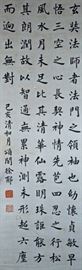 玄奘法師者法門領袖也幼懷貞敏早
悟三空之心長契神情先苞四忍之行松
風水月未足比其清華仙露明珠詎能方
其朗潤故以智通無累神測未形超六塵
而迥出無對
己亥清和月